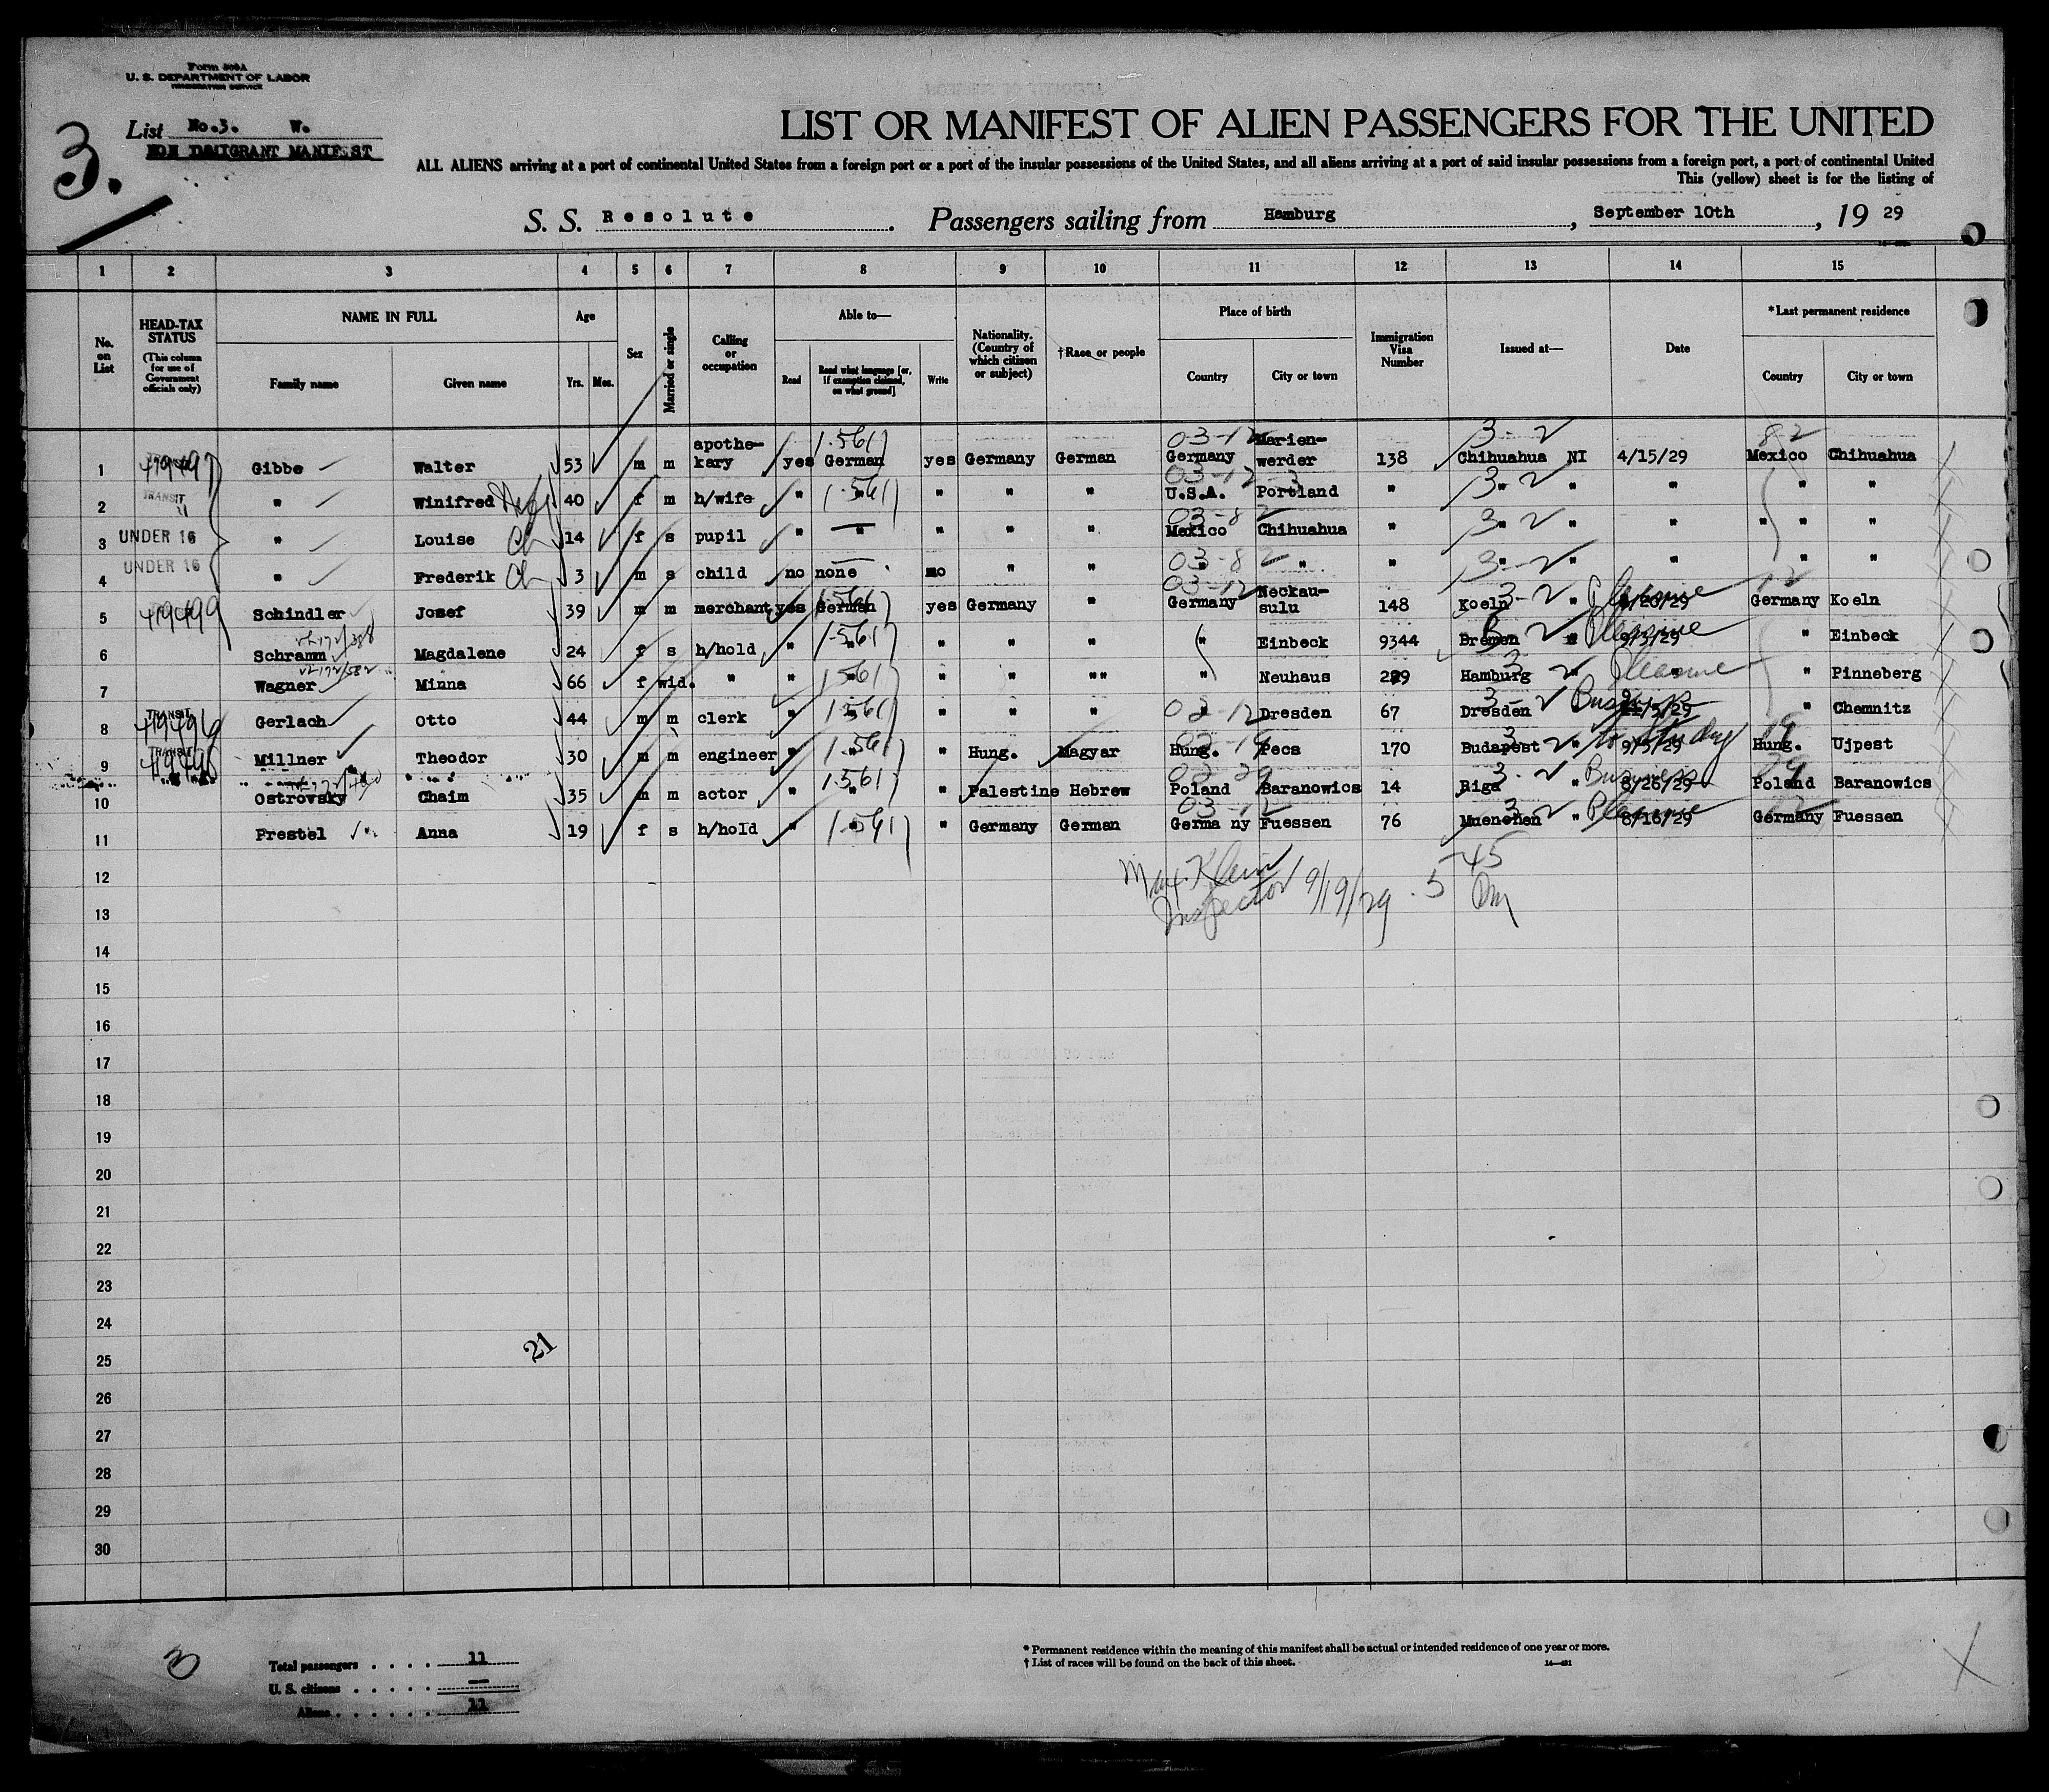 Form 500A
U. S. DEPARTMENT OF LABOR
IMMIGRATION SERVICE
3.
List No.3. W.
NON IMMIGRANT MANIFEST
LIST OR MANIFEST OF ALIEN PASSENGERS FOR THE UNITED
ALL ALIENS arriving at a port of continental United States from a foreign port or a port of the insular possessions of the United States, and all aliens arriving at a port of said insular possessions from a foreign port, a port of continental United
This (yellow) sheet is for the listing of
S. S. Resolute . Passengers sailing from Hamburg , September 10th , 19 29
1 2 3 4 5 6 7 8 9 10 11 12 13 14 15
No. on List
HEAD-TAX STATUS (This column for use of Government officials only)
NAME IN FULL
Family name Given name
Age
Yrs. Mos.
Sex
Married or single
Calling or occupation
Able to—
Read Read what language [or, if exemption claimed, on what ground] Write
Nationality. (Country of which citizen or subject)
†Race or people
Place of birth
Country City or town
Immigration Visa Number
Issued at—
Date
*Last permanent residence
Country City or town
1 419497 Gibbe Walter 53 m m apothe-kary yes German 1-561 yes Germany German 03-12 Germany Marien-werder 138 3-2 Chihuahua NI 4/15/29 82 Mexico Chihuahua
2 TRANSIT " " Winifred 40 f m h/wife " 1-561 " " " " 03-12 U.S.A. Portland " 3-2 " " " " "
3 UNDER 16 " Louise Ch 14 f s pupil " " " " " 03-8 2 Mexico Chihuahua " 3-2 " " " " " "
4 UNDER 16 " Frederik Ch 3 m s child no none no " " 03-8 2 " " " 3-2 " " " " "
5 419499 Schindler Josef 39 m m merchant yes German 1-561 yes Germany " 03-12 Germany Neckau-sulu 148 3-2 Koeln " Pleasure /20/29 12 Germany Koeln
6 Schramm Magdalene 24 f s h/hold " " 1-561 " " " " Einbeck 9344 3-2 Bremen " Pleasure 9/3/29 " Einbeck
7 Wagner Minna 66 f wid. " " " 1-561 " " "" " Neuhaus 229 3 Hamburg " Pleasure " Pinneberg
8 TRANSIT 419496 Gerlach Otto 44 m m clerk " " 1-561 " " " 03-12 " Dresden 67 3-2 Dresden Business " Chemnitz
9 TRANSIT 419498 Millner Theodor 30 m m engineer " " 1-561 " Hung. Magyar 03-19 Hung. Pecs 170 3-2 Budapest " to Study 9/5/29 19 Hung. Ujpest
10 Ostrovsky Chaim 35 m m actor " " 1-561 " Palestine Hebrew 03-29 Poland Baranowics 14 3-2 Riga " Business 8/26/29 29 Poland Baranowics
11 Frestel Anna 19 f s h/hold " " 1-561 " Germany German 03-12 Germa ny Fuessen 76 3-2 Muenchen " Pleasure 8/16/29 12 Germany Fuessen
12
Max. Klein 5 45
13
Inspector 9/19/29 . 5 Pm
14
15
16
17
18
19
20
21
22
23
24
21
25
26
27
28
29
30
3
Total passengers . . . . 11
U. S. citizens . . . . . —
Aliens . . . . . . 11
* Permanent residence within the meaning of this manifest shall be actual or intended residence of one year or more.
† List of races will be found on the back of this sheet.